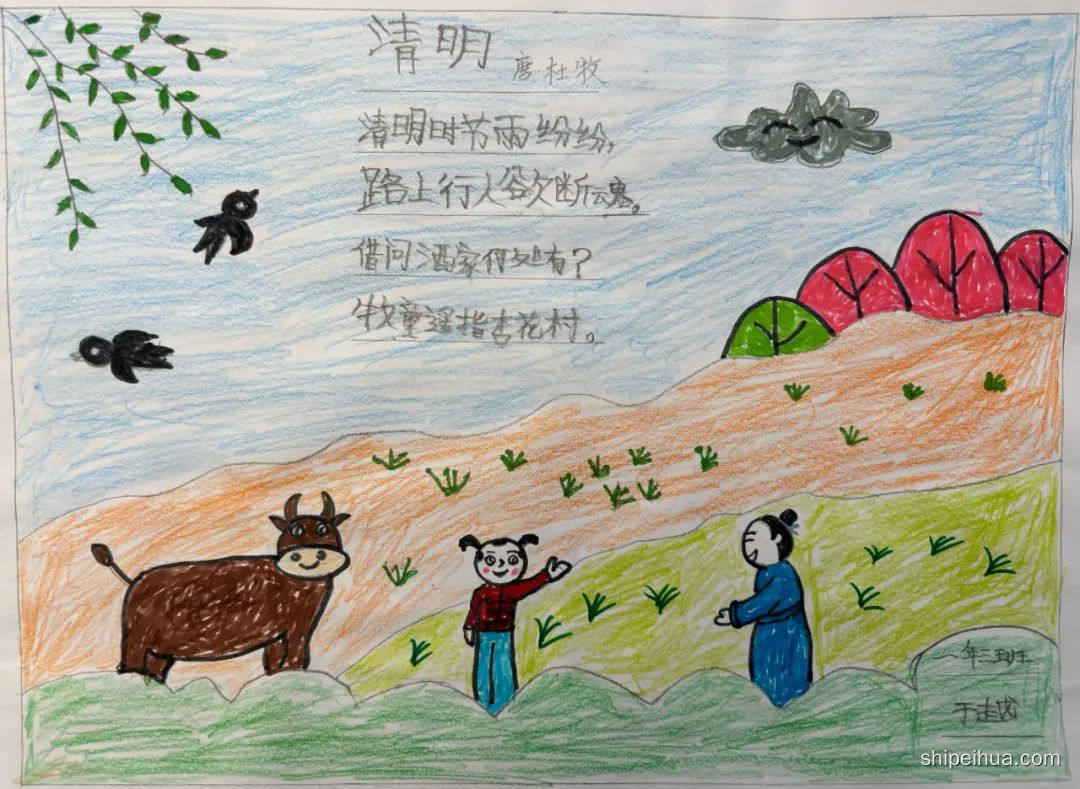 清明
唐 杜牧
清明时节雨纷纷，
路上行人欲断魂。
借问酒家何处有？
牧童遥指杏花村。
一年三班
于走
shipeihua.com